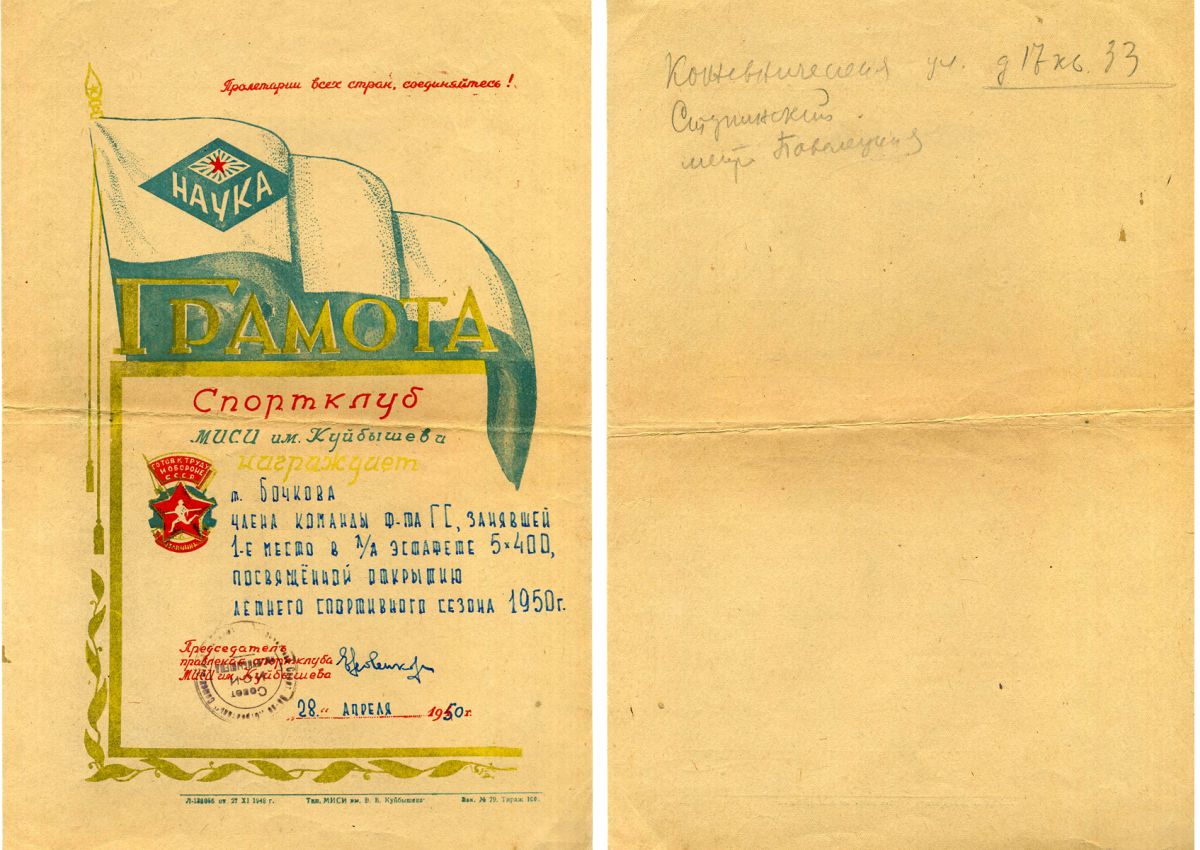 Пролетарии всех стран, соединяйтесь!
НАУКА
ГРАМОТА
Спортклуб
МИСИ им. Куйбышева
награждает
ГОТОВ К ТРУДУ
И ОБОРОНЕ
С.С.С.Р.
ОТЛИЧНИК
т. БОЧКОВА
ЧЛЕНА КОМАНДЫ Ф-ТА ГС, ЗАНЯВШЕЙ
1-Е МЕСТО В Л/А ЭСТАФЕТЕ 5×400,
ПОСВЯЩЁННОЙ ОТКРЫТИЮ
ЛЕТНЕГО СПОРТИВНОГО СЕЗОНА 1950г.
Председатель
правления спортклуба
МИСИ им. Куйбышева
СОВЕТ
"28" АПРЕЛЯ 1950г.
от 27 XI 1948 г. Тип. МИСИ им. В. В. Куйбышева Зак. № 79. Тираж 100.
Кожевническая ул. д 17 кв. 33
Ступинский
метро Павелецкая